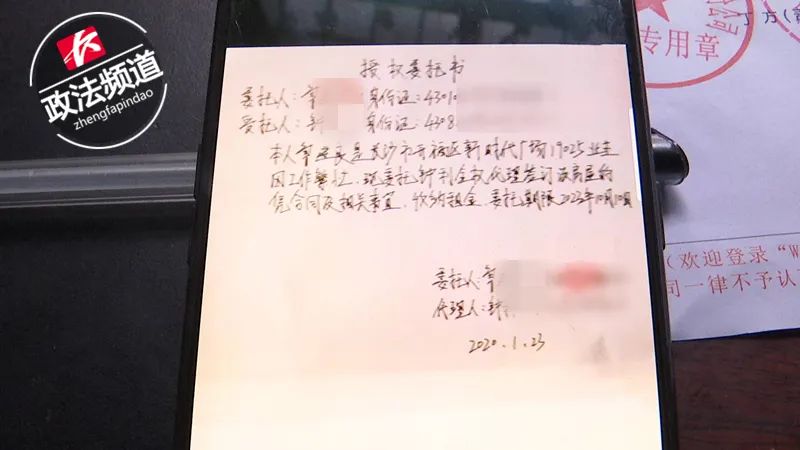 政法频道
zhengfapindao
专用章
授权委托书
委托人:
身份证:4301
受托人:
身份证:4308
本人 是长沙市开福区新时代广场1902S业主
因工作繁忙,现委托 全权代理签订该房屋的
凭合同及相关事宜、收纳租金、委托期限2023年10月10日
委托人:
代理人:
2020.1.23
(欢迎登录“W
司一律不予认